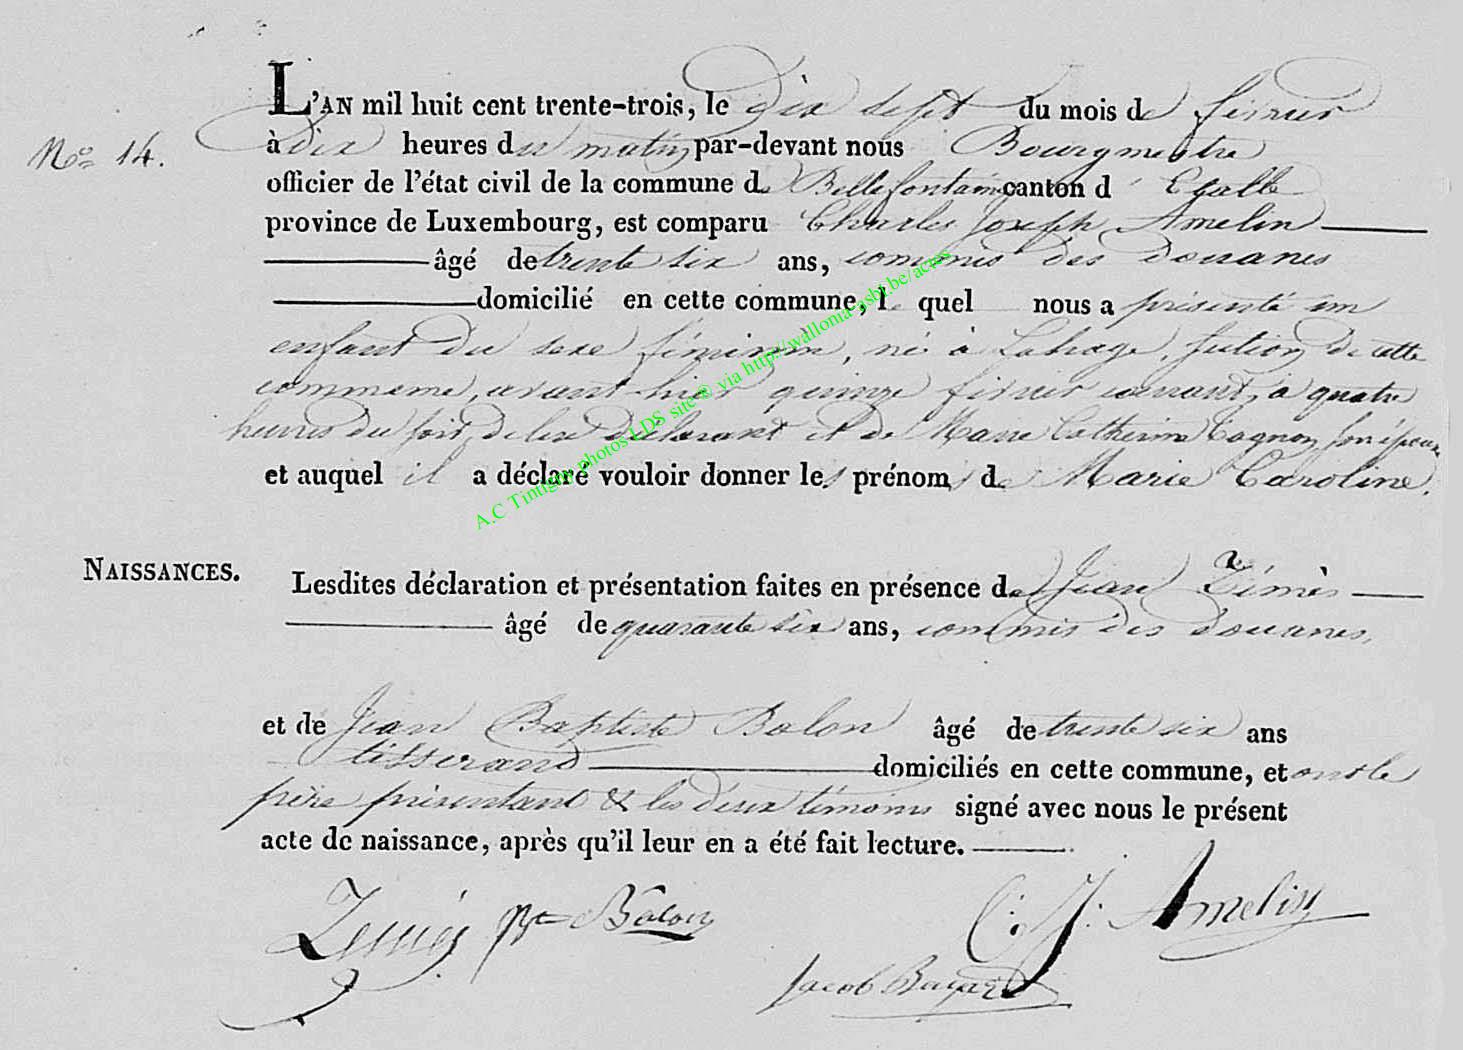 L'AN mil huit cent trente-trois, le dix sept du mois de février
No 14.
à dix heures du matin par-devant nous Bourgmestre
officier de l'état civil de la commune de Bellefontaine canton d' Etalle
province de Luxembourg, est comparu Charles Joseph Amelin
âgé de trente six ans, commis des douanes
domicilié en cette commune, le quel nous a présenté un
enfant du sexe féminin, né à Lahage, section de cette
commune, avant-hier quinze février courant, à quatre
heures du soir, de lui déclarant et de Marie Catherine Cognon, son épouse
et auquel il a déclaré vouloir donner les prénoms de Marie Caroline.
A.C Tintigny photos LDS site © via http://wallonia-asbl.be/actes
NAISSANCES.
Lesdites déclaration et présentation faites en présence de Jean Zémès
âgé de quarante six ans, commis des douanes,
et de Jean Baptiste Balon âgé de trente six ans
tisserand domiciliés en cette commune, et ont le
père présentant & les deux témoins signé avec nous le présent
acte de naissance, après qu'il leur en a été fait lecture.
Balon C: J: Amelin
Jacob